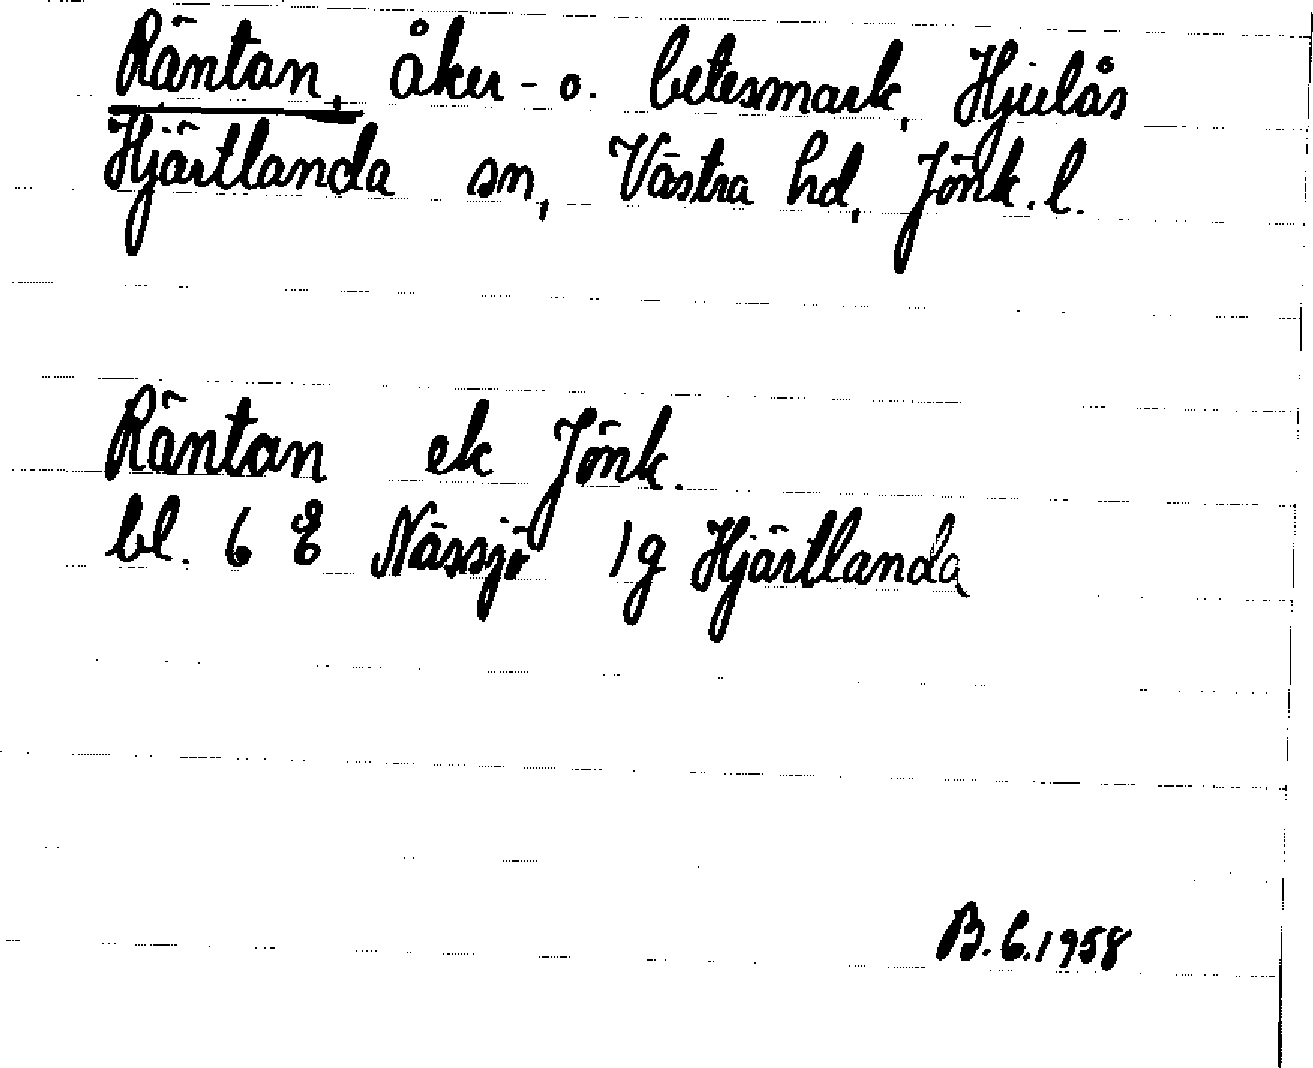 Räntan, åker- o. betesmark, Hjulås
Hjärtlanda sn, Västra hd, Jönk. l.
Räntan ek Jönk.
bl. 6 E Nässjö 1g Hjärtlanda
B.C. 1958